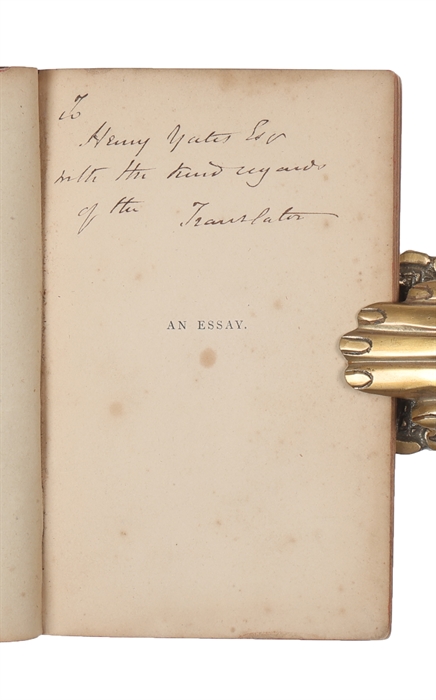 To
Henry Yates Esqr
with the kind regards
of the Translator
AN ESSAY.